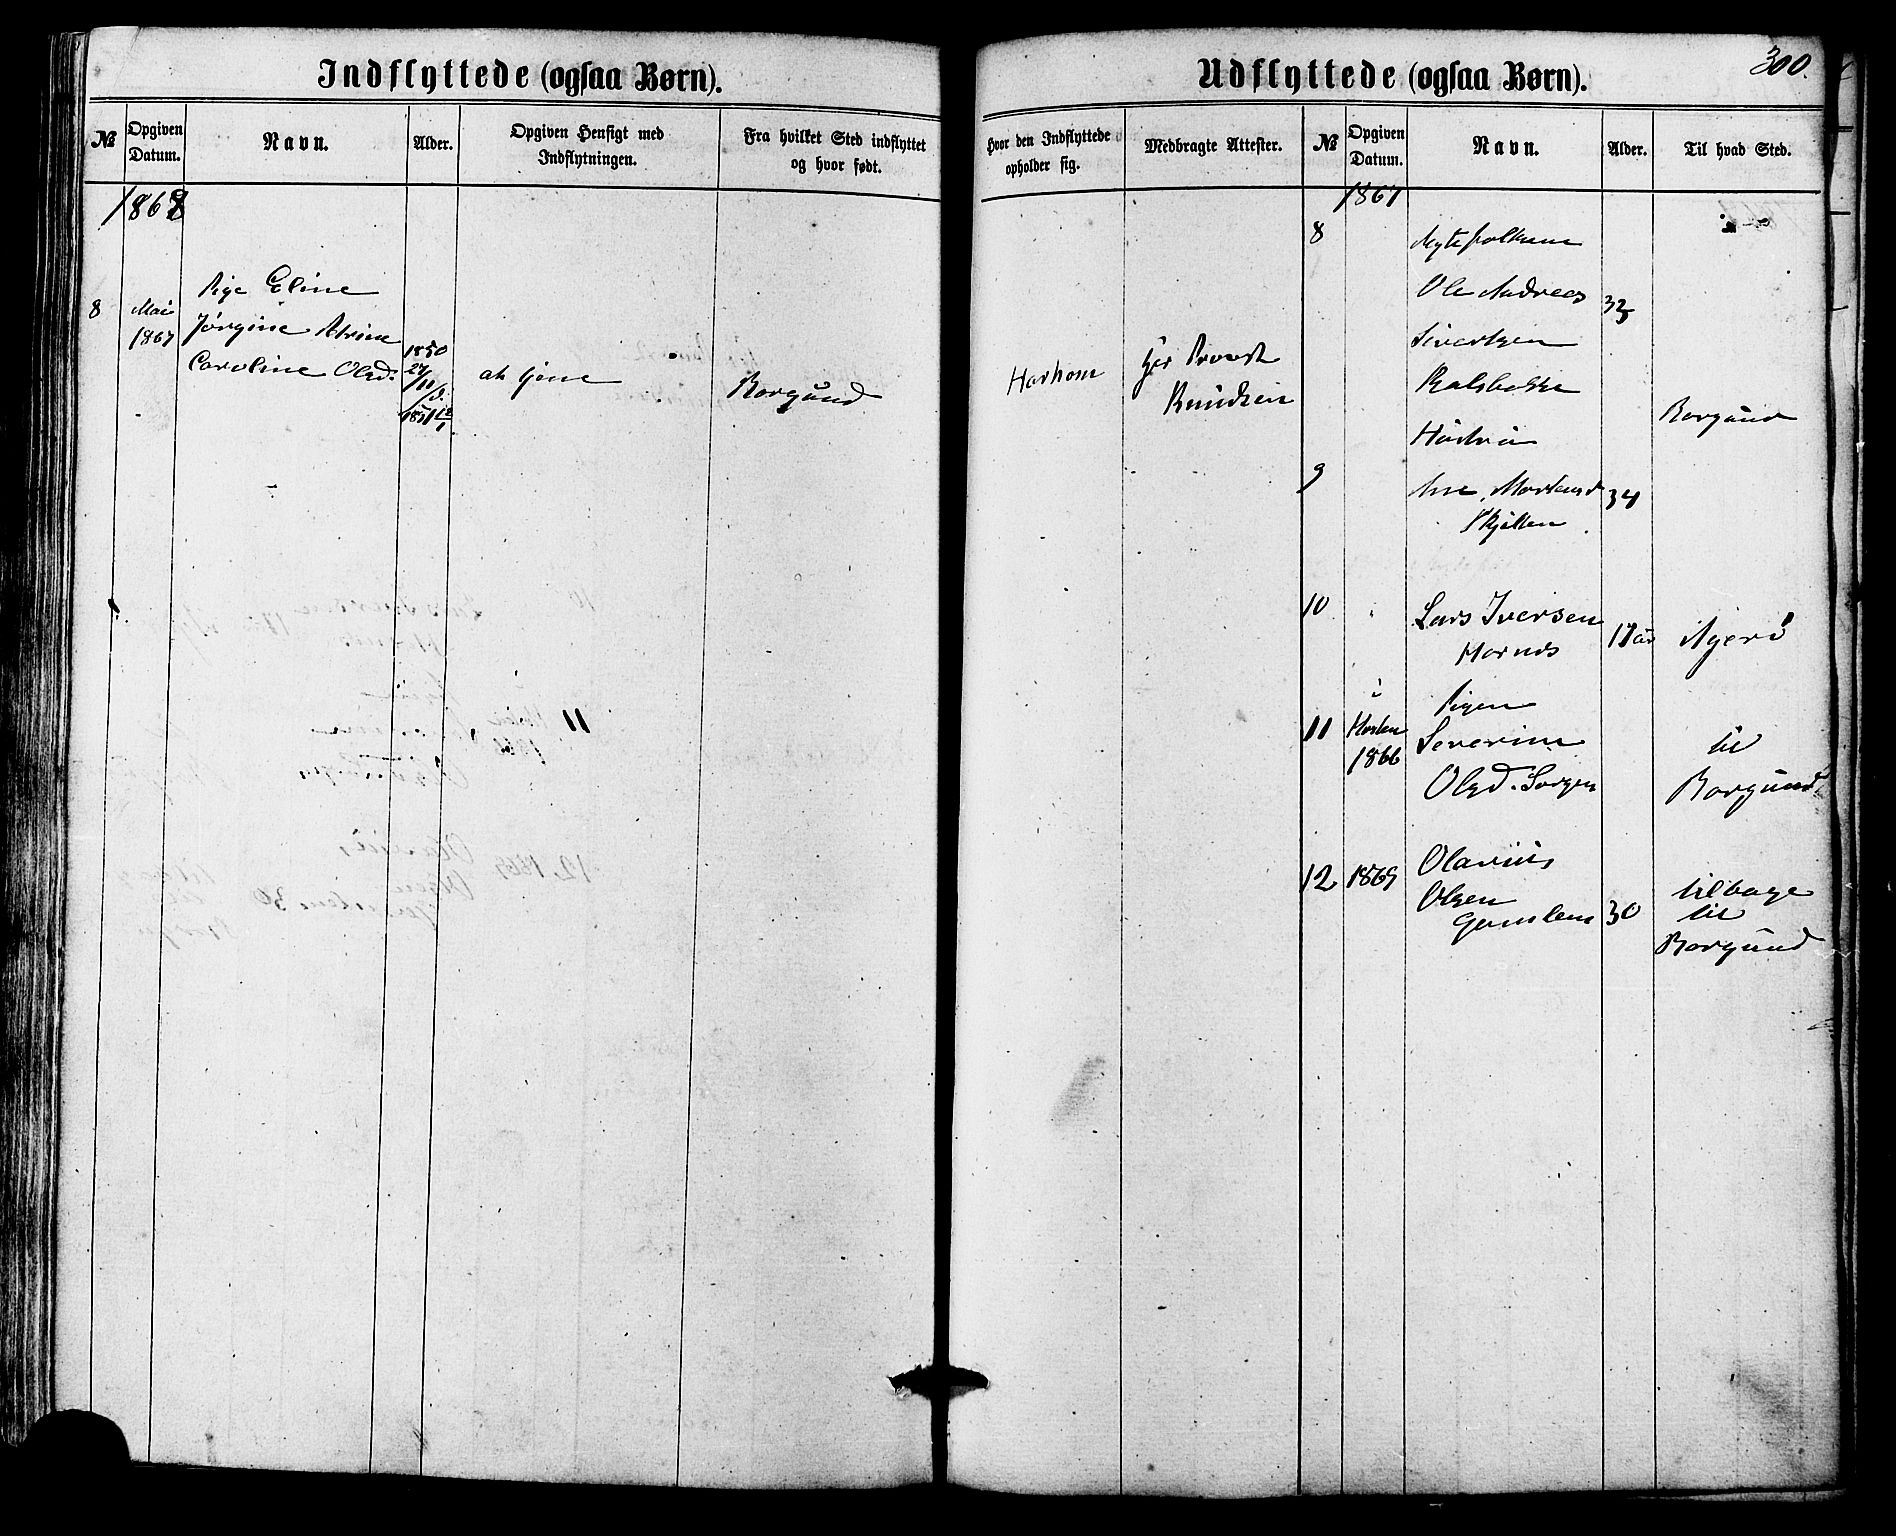 Indflyttede (ogsaa Børn).
№
Opgiven Datum.
Navn.
Alder.
Opgiven Hensigt med Indflytningen.
Fra hvilket Sted indflyttet og hvor født.
1868
8
Mai
1867
Pige Eline
Jørgine Petrine
Caroline Olsd.
1850
27/11
1851
at tjene
Borgund
Udflyttede (ogsaa Børn).
300.
Hvor den Indflyttede opholder sig.
Medbragte Attester.
№
Opgiven Datum.
Navn.
Alder.
Til hvad Sted.
Harhom
Hr Provst
Knudsen
1867
8
Ægtefolkene
Ole Andreas
33
Sivertsen
Hustru
Borgund
9
Ane Mortensd
34
10
Lars Iversen
17 aar
i
11
Høsten
1866
Pigen
Severine
Olsd.
til
Borgund
12
1869
Olavius
Olsen
Gamlem
30
tilbage
til
Borgund